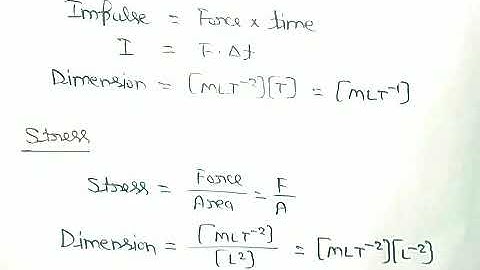 Impulse = Force × time
I = F·Δt
Dimension = [MLT⁻²][T] = [MLT⁻¹]
Stress
Stress = Force/Area = F/A
Dimension = [MLT⁻²]/[L²] = [MLT⁻²][L⁻²]